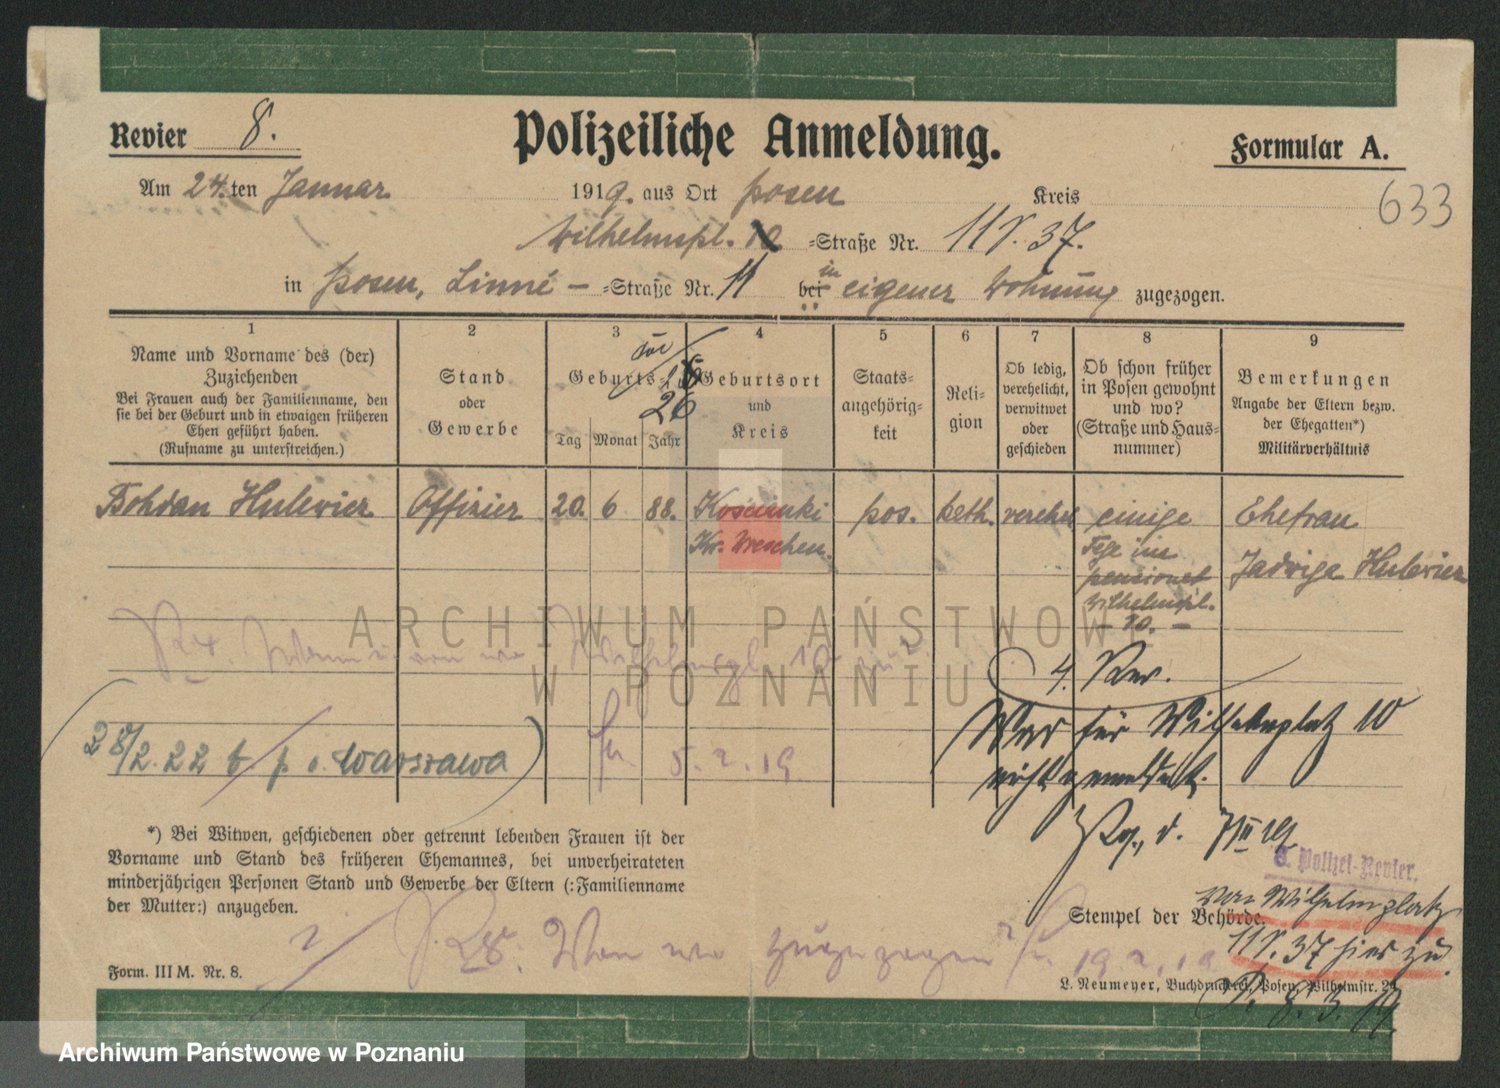 Revier 8.
Polizeiliche Anmeldung.
Formular A.
633
Am 24.ten Januar 1919. aus Ort Posen Kreis
Wilhelmspl. 10 =Straße Nr. 118. 37.
in Posen, Linné – =Straße Nr. 11 bei in eigener Wohnung zugezogen.
1
Name und Vorname des (der)
Zuziehenden
Bei Frauen auch der Familienname, den
sie bei der Geburt und in etwaigen früheren
Ehen geführt haben.
(Rufname zu unterstreichen.)
2
Stand
oder
Gewerbe
3
Geburts-
26
Tag Monat Jahr
4
Geburtsort
und
Kreis
5
Staats-
angehörig-
keit
6
Reli-
gion
7
Ob ledig,
verehelicht,
verwitwet
oder
geschieden
8
Ob schon früher
in Posen gewohnt
und wo?
(Straße und Haus-
nummer)
9
Bemerkungen
Angabe der Eltern bezw.
der Ehegatten*)
Militärverhältnis
Bohdan Hulewicz
Offizier
20. 6 88.
Kościanki
Kr. Wreschen.
pos.
kath.
verehel
einige
Tage im
pensionat
Wilhelmspl.
– 10. –
Ehefrau
Jadwiga Hulewicz
4. Rev.
War für Wilhelmplatz 10
nicht gemeldet.
28/2.22 Warszawa
5. 2. 19.
*) Bei Witwen, geschiedenen oder getrennt lebenden Frauen ist der
Vorname und Stand des früheren Ehemannes, bei unverheirateten
minderjährigen Personen Stand und Gewerbe der Eltern (:Familienname
der Mutter:) anzugeben.
8. Polizei-Revier.
Stempel der Behörde.
von Wilhelmplatz
118. 37 hier zu
8. 3. 19.
R 8. Wann wo zugezogen?
Form. III M. Nr. 8.
L. Neumeyer, Buchdruckerei, Posen, Wilhelmstr. 24
ARCHIWUM PAŃSTWOWE
W POZNANIU
Archiwum Państwowe w Poznaniu